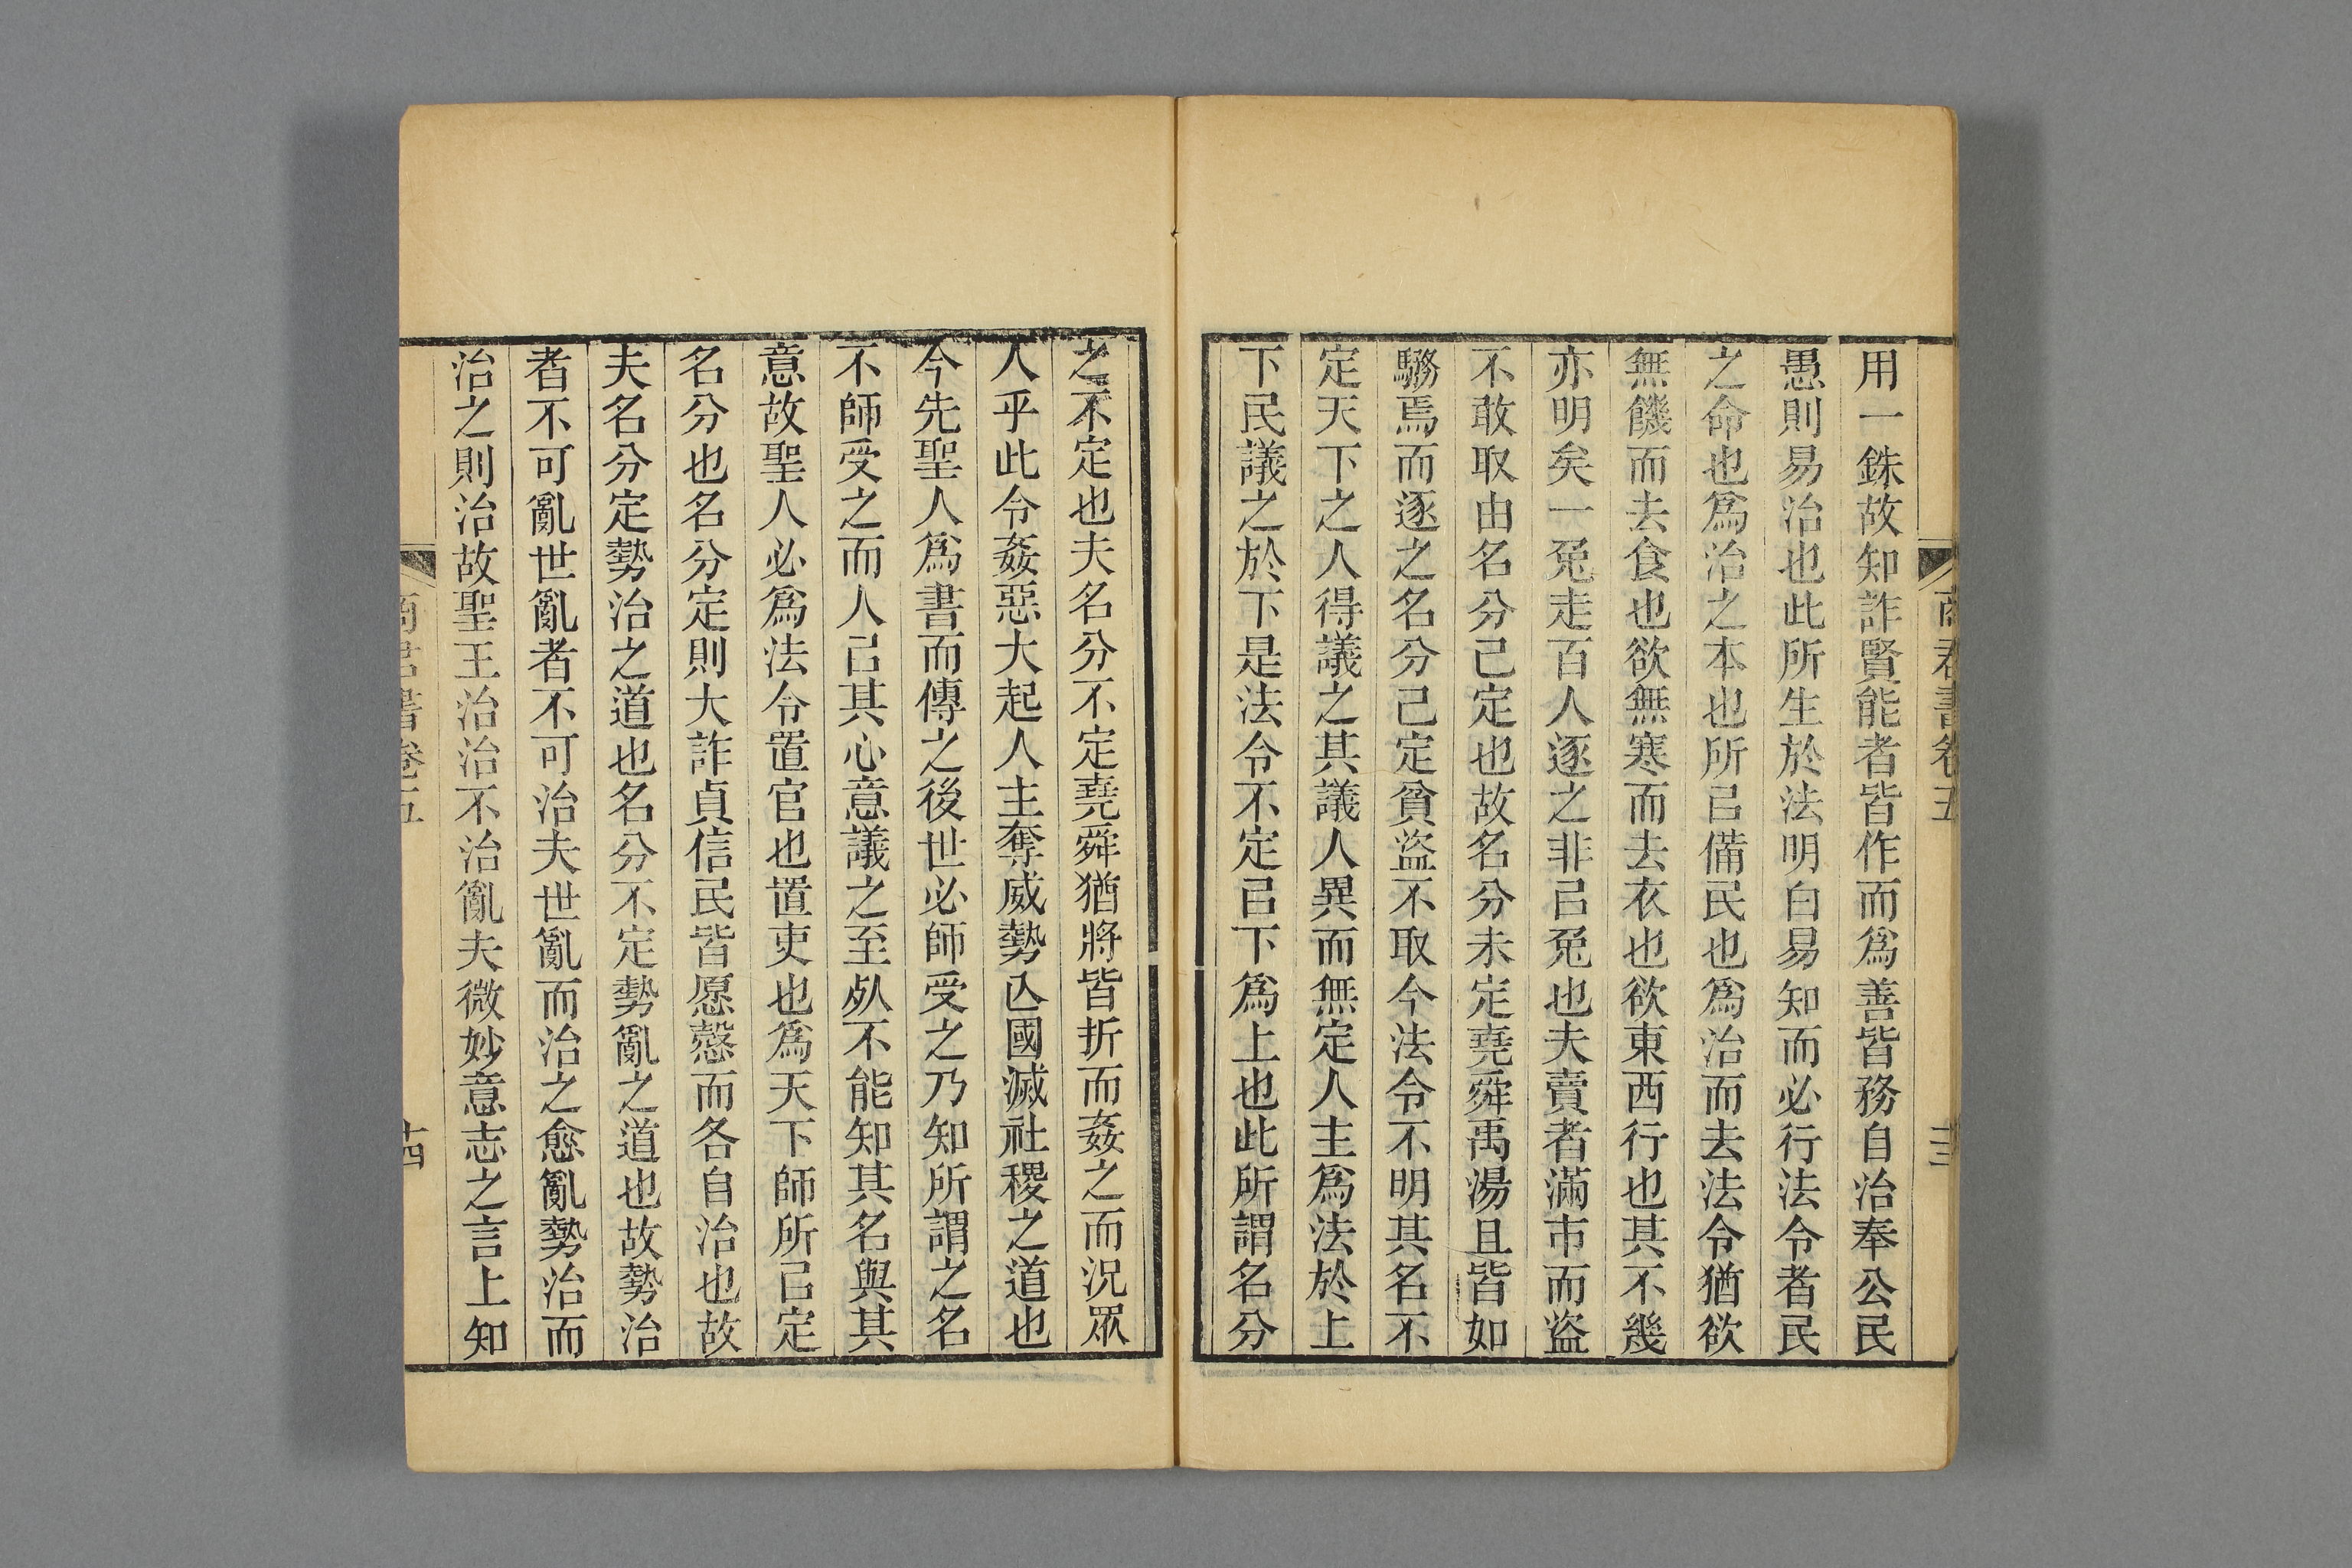 商君書卷五
十三
用一銖故知詐賢能者皆作而爲善皆務自治奉公民
愚則易治也此所生於法明白易知而必行法令者民
之命也爲治之本也所㠯備民也爲治而去法令猶欲
無饑而去食也欲無寒而去衣也欲東西行也其不幾
亦明矣一兔走百人逐之非㠯兔也夫賣者滿市而盜
不敢取由名分已定也故名分未定堯舜禹湯且皆如
騖焉而逐之名分已定貧盜不取今法令不明其名不
定天下之人得議之其議人異而無定人主爲法於上
下民議之於下是法令不定㠯下爲上也此所謂名分
之不定也夫名分不定堯舜猶將皆折而姦之而況眾
人乎此令姦惡大起人主奪威勢亾國滅社稷之道也
今先聖人爲書而傳之後世必師受之乃知所謂之名
不師受之而人㠯其心意議之至𣦸不能知其名與其
意故聖人必爲法令置官也置吏也爲天下師所㠯定
名分也名分定則大詐貞信民皆愿愨而各自治也故
夫名分定勢治之道也名分不定勢亂之道也故勢治
者不可亂世亂者不可治夫世亂而治之愈亂勢治而
治之則治故聖王治治不治亂夫微妙意志之言上知
商君書卷五
十四